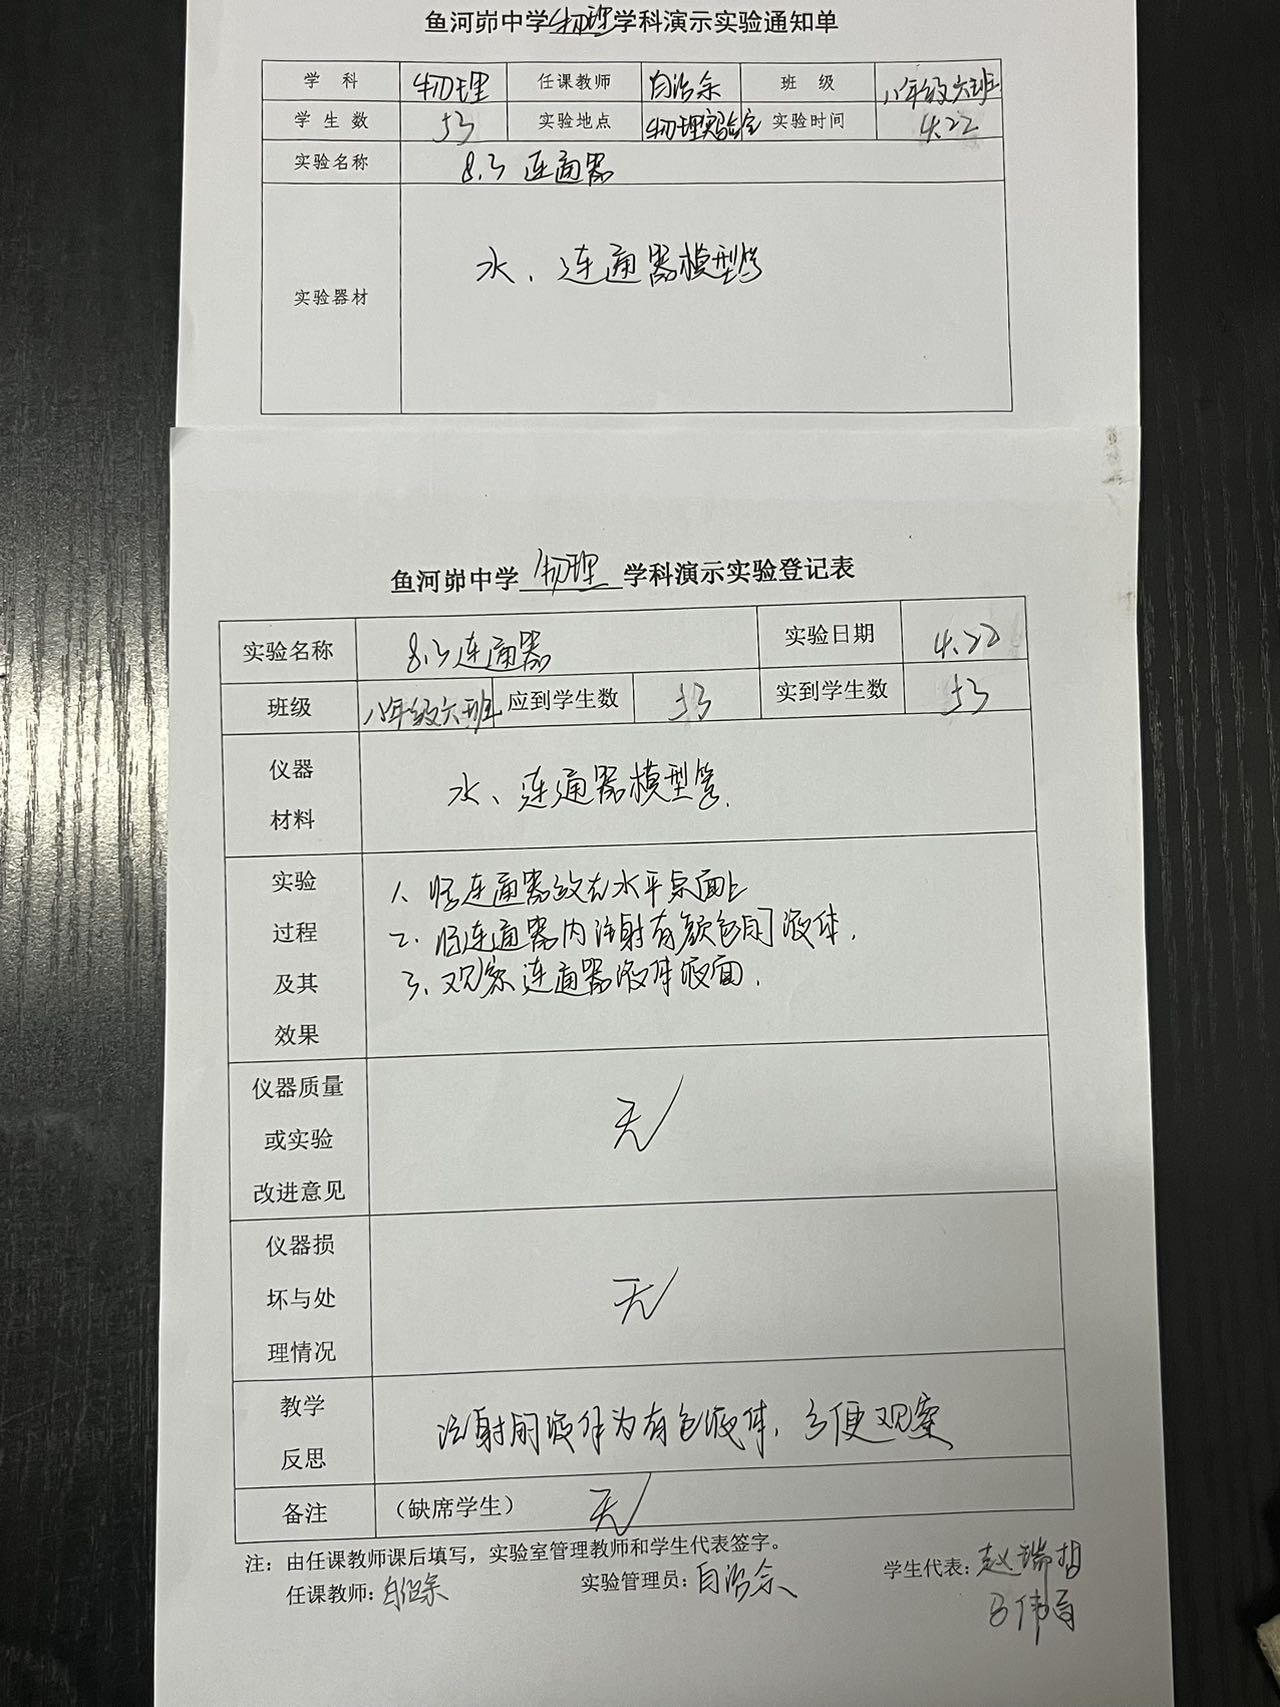 鱼河峁中学物理学科演示实验通知单
学 科 物理 任课教师 白治宗 班 级 八年级六班
学 生 数 53 实验地点 物理实验室 实验时间 4.22
实验名称 8.3 连通器
实验器材 水、连通器模型管
鱼河峁中学 物理 学科演示实验登记表
实验名称 8.3连通器 实验日期 4.22
班级 八年级六班 应到学生数 53 实到学生数 53
仪器
材料
水、连通器模型管.
实验
过程
及其
效果
1. 将连通器放在水平桌面上
2. 向连通器内注射有颜色的液体.
3. 观察连通器液体液面.
仪器质量
或实验
改进意见
无
仪器损
坏与处
理情况
无
教学
反思
注射的液体为有色液体,方便观察
备注 (缺席学生) 无
注:由任课教师课后填写,实验室管理教师和学生代表签字。
任课教师: 实验管理员:白治宗 学生代表:赵瑞